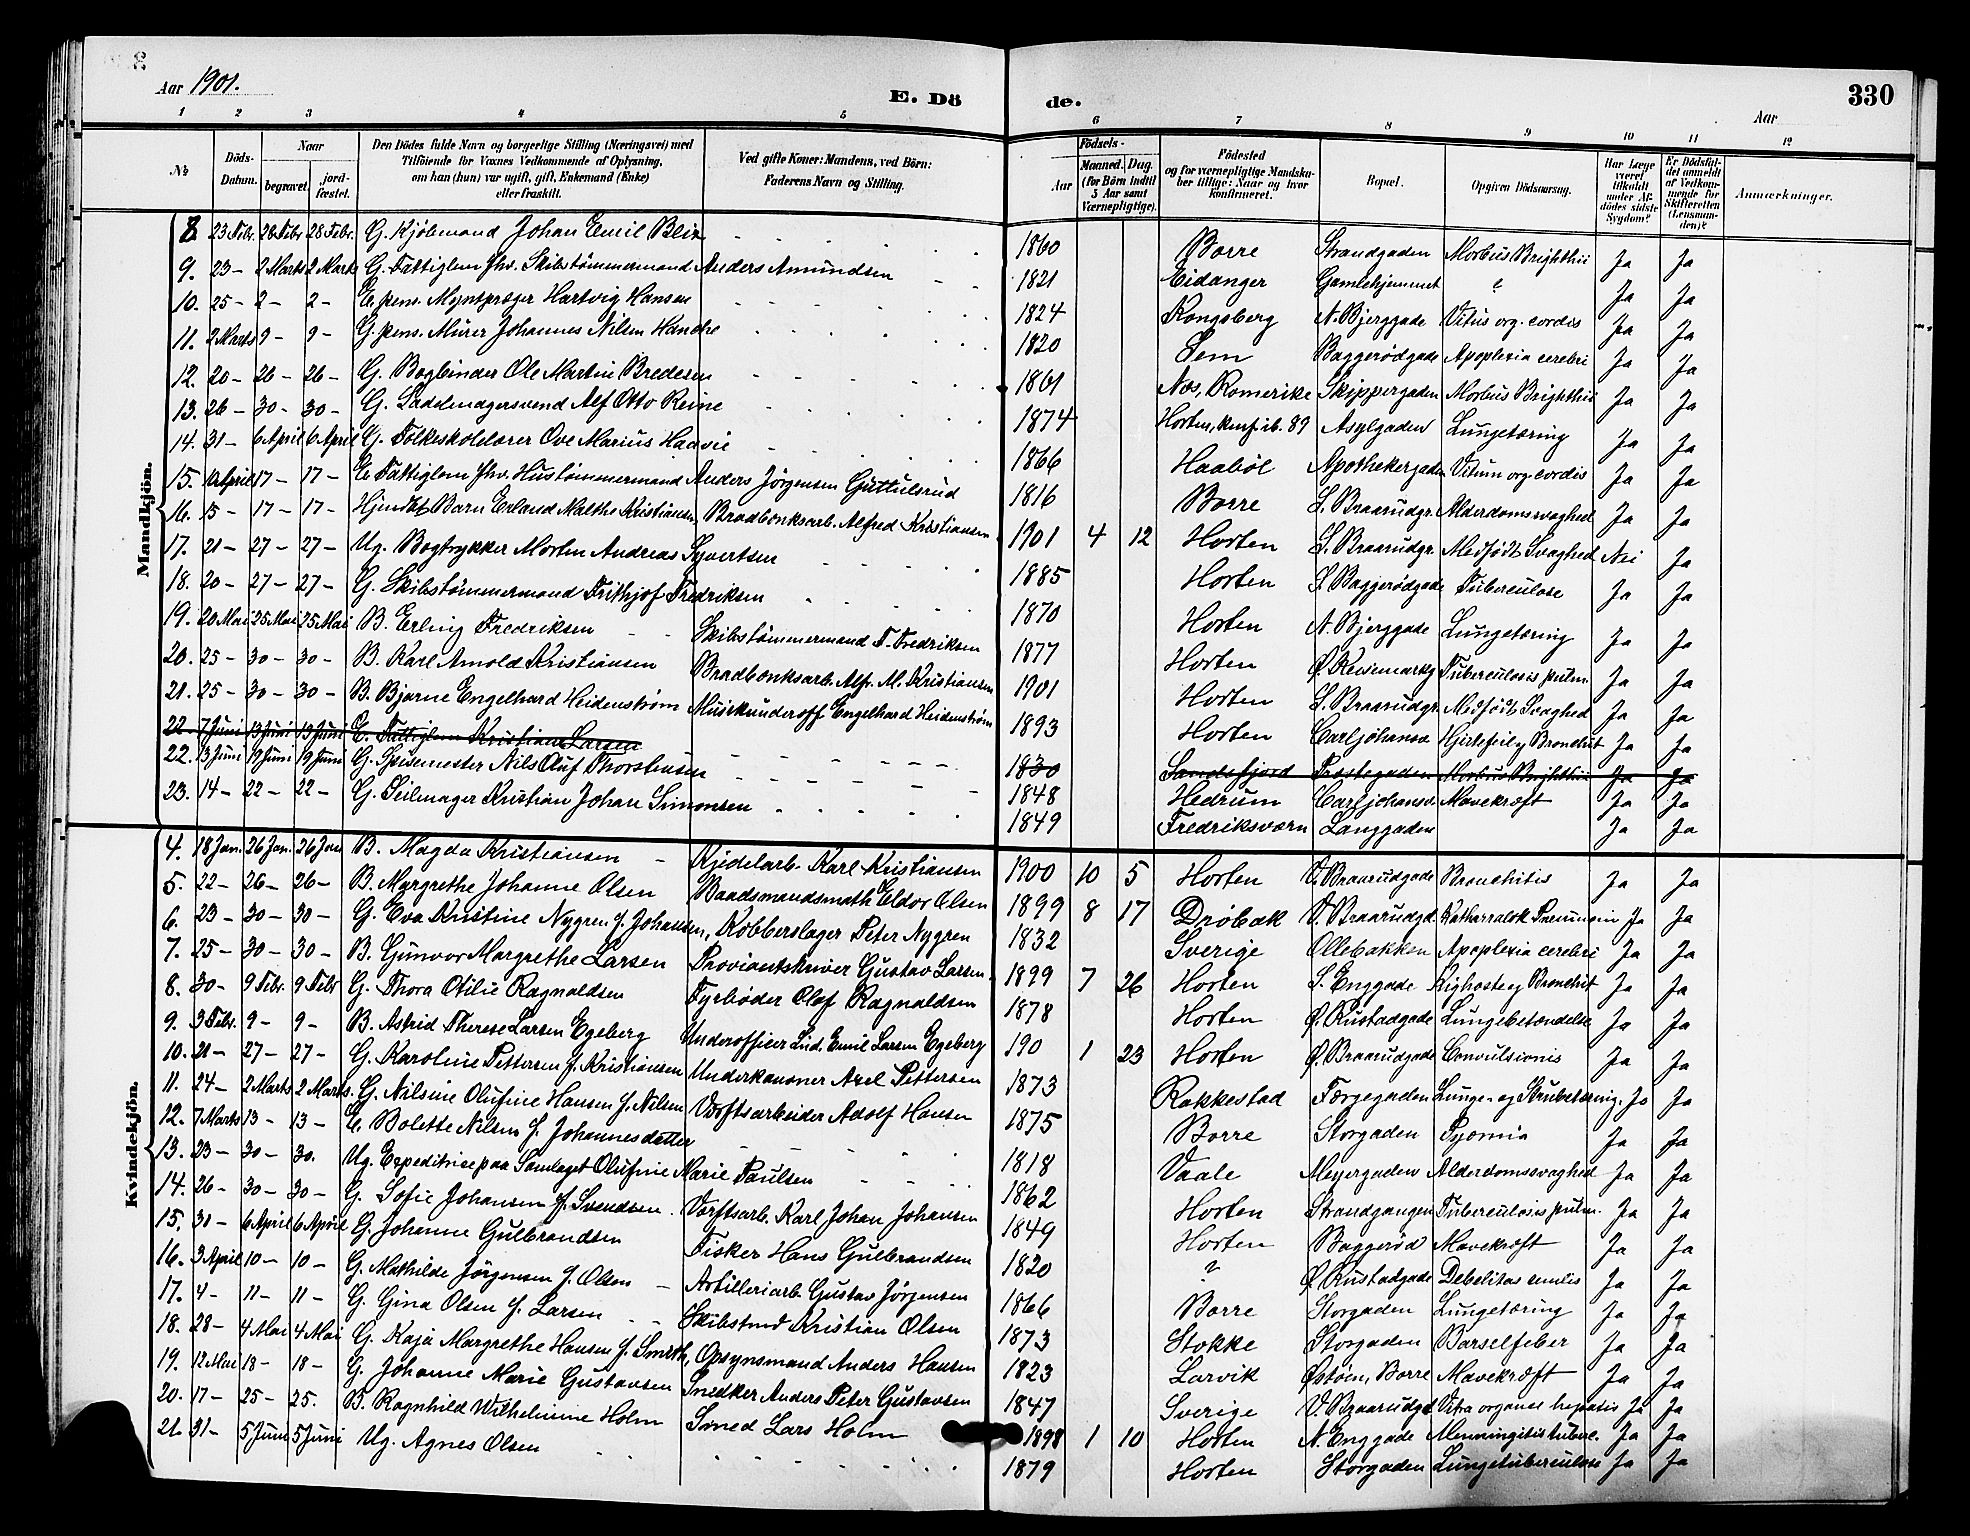 Aar 1901. E. Dö de. Aar 330
1 2 3 4 5 6 7 8 9 10 11 12
№ Döds-Datum. Naar begravet. jord-fæstet. Den Dödes fulde Navn og borgerlige Stilling (Næringsvei) med Tilföiende for Voxnes Vedkommende af Oplysning, om han (hun) var ugift, gift, Enkemand (Enke) eller fraskilt. Ved gifte Koner: Mandens, ved Börn: Faderens Navn og Stilling. Födsels- Aar Maaned. Dag. (for Börn indtil 5 Aar samt Værnepligtige). Födested og for værnepligtige Mandskaber tillige: Naar og hvor konfirmeret. Bopæl. Opgiven Dödsaarsag. Har Læge været tilkaldt under Afdödes sidste Sygdom? Er Dödsfaldet anmeldt af Vedkommende for Skifteretten (Lensmanden)? Anmærkninger.
Mandkjön.
8. 23 Febr. 28 Febr 28 Febr. G. Kjöbmand Johan Emil Blix 1860 Borre Strandgaden Morbus Brighthii Ja Ja
9. 23 – 2 Marts 2 Marts G. Fattiglem fhv. Skibstømmermand Anders Amundsen 1821 Eidanger Gamlehjemmet ? Ja Ja
10. 25 – 2 – 2 – E. pens. Myntpræger Hartvig Hansen 1824 Kongsberg N. Bjerggade Vitus org. cordis Ja Ja
11. 2 Marts 9 – 9 – G. pens. Murer Johannes Nilsen Hanche 1820 Sem Baggerødgade Apoplexia cerebri Ja Ja
12. 20 – 26 – 26 – G. Bogbinder Ole Martin Bredesen 1861 Næs, Romerike Skippergaden Morbus Brighthii Ja Ja
13. 26 – 30 – 30 – G. Sadelmagersvend Alf Otto Reine 1874 Horten, konf. ib. 89 Asylgaden Lungetæring Ja Ja
14. 31 – 6 April 6 April G. Folkeskolelærer Ove Marius Haavie 1866 Haaböl Apothekergaden Vitium org. cordis Ja Ja
15. April 17 – 17 – E. Fattiglem fhv. Hustømmermand Anders Jörgensen Guttulsrud 1816 Borre S. Braarudgr. Alderdomssvaghed Ja Ja
16. 15 – 17 – 17 – Hjemdbt. Barn Erland Malths Kristiansen, Bradbænksarb. Alfred Kristiansen 1901 4 12 Horten S. Braarudgr. Medfödt Svaghed Nei Ja
17. 21 – 27 – 27 – Ug. Bogtrykker Morten Andreas Syvertsen 1885 Horten S. Baggerødgade Tuberculose Ja Ja
18. 20 – 27 – 27 – G. Skibstømmermand Frithjof Fredriksen 1870 Horten N. Bjerggade Lungetæring Ja Ja
19. 20 Mai 25 Mai 25 Mai B. Erling Fredriksen Skibstømmermand F. Fredriksen 1877 Horten Ø. Keisemarkg. Tuberculosis pulm. Ja Ja
20. 25 – 30 – 30 – B. Karl Arnold Kristiansen Bradbænksarb. Alfr. M. Kristiansen 1901 Horten S. Braarudgr. Medfödt Svaghed Ja Ja
21. 25 – 30 – 30 – B. Bjarne Engelhard Heidenstrøm Musikunderoff Engelhard Heidenstrøm 1893 Horten Carljohansv. Hjertefeil og Bronchit Ja Ja
22. 7 Juni 13 Juni 13 Juni E. Fattiglem Kristian Larsen 1830 Sandefjord Præstegaden Morbus Brighthii Ja Ja
22. 13 Juni 19 Juni 19 Juni G. Spisemester Nils Oluf Thorstensen 1848 Hedrum Carljohansv. Mavekræft Ja Ja
23. 14 – 22 – 22 – G. Seilmager Kristian Johan Simonsen 1849 Fredriksværn Langgaden Ja Ja
Kvindekjön.
4. 18 Jan. 26 Jan. 26 Jan B. Magda Kristiansen – Kjedelarb. Karl Kristiansen 1900 10 5 Horten V. Braarudgade Bronchitis Ja Ja
5. 22 – 26 – 26 – B. Margrethe Johanne Olsen Baadsmandsmath Eldor Olsen 1899 8 17 Drøbak V. Braarudgd. Katharralsk Pneumoni Ja Ja
6. 23 – 30 – 30 – G. Eva Kristine Nygren f. Johansen, Kobberslager Peter Nygren 1832 Sverige Ollebakken Apoplexia cerebri Ja Ja
7. 25 – 30 – 30 – B. Gunvor Margrethe Larsen Proviantskriver Gustav Larsen 1899 7 26 Horten S. Enggade Kighoste og Bronchit Ja Ja
8. 30 – 9 Febr. 9 Febr G. Thora Otilie Ragnaldsen Fyrbøder Olaf Ragnaldsen 1878 Horten Ø. Rustadgade Lungebetændelse Ja Ja
9. 3 Febr. 9 – 9 – B. Astrid Therese Larsen Egeberg Underofficer Lud. Emil Larsen Egeberg 190 1 23 Horten Ø. Braarudgade Convulsionis Ja Ja
10. 21 – 27 – 27 – G. Karoline Pettersen f. Kristiansen Underkanoner Axel Pettersen 1873 Rakkestad Færgegaden Lunge- og Strubetæring. Ja Ja
11. 24 – 2 Marts 2 Marts. G. Nilsine Olufine Hansen f. Nilsen Værftsarbeider Adolf Hansen 1875 Borre Storgaden Pyæmia Ja Ja
12. 7 Marts 13 – 13 – E. Bolette Nilsen f. Johannesdatter 1818 Vaale Meyergaden Alderdomssvaghed Ja Ja
13. 23 – 30 – 30. Ug. Expeditrice paa Samlaget Olufine Marie Paulsen 1862 Horten Strandgangen Tuberculosis pulm. Ja Ja
14. 26 – 30 – 30 – G. Sofie Johansen f. Svendsen. Værftsarb. Karl Johan Johansen 1849 Horten Baggerød Mavekræft Ja Ja
15. 31 – 6 April 6 April G. Johanne Gulbrandsen Fisker Hans Gulbrandsen 1820 ? Ø. Rustadgade Debelitas senilis Ja Ja
16. 3 April 10 – 10 – G. Mathilde Jörgensen f. Olsen – Artilleriarb. Gustav Jörgensen 1866 Borre Storgaden Lungetæring Ja Ja
17. 4 – 11 – 11 – G. Gina Olsen f. Larsen Skibstmd Kristian Olsen 1873 Stokke Storgaden Barselfeber Ja Ja
18. 28 – 4 Mai 4 Mai G. Kaja Margrethe Hansen f. Smith, Opsynsmand Anders Hansen 1823 Larvik Østøen, Borre Mavekræft Ja Ja
19. 12 Mai 18 – 18 – G. Johanne Marie Gustavsen Snedker Anders Peter Gustavsen 1847 Sverige V. Braarudgd. Vitia organes hepatis Ja Ja
20. 17 – 25 – 25. B. Ragnhild Wilhelmine Holm Smed Lars Holm 1898 1 10 Horten N. Enggade Menningitis tuberc. Ja Ja
21. 31 – 5 Juni 5 Juni Ug. Agnes Olsen 1879 Horten Storgaden Lungetuberculose Ja Ja